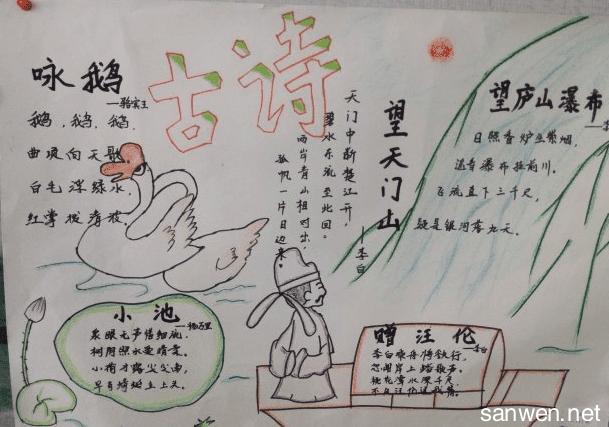 古诗
咏鹅
—骆宾王
鹅，鹅，鹅，
曲项向天歌
白毛浮绿水，
红掌拨清波。
望天门山
—李白
天门中断楚江开，
碧水东流至此回。
两岸青山相对出，
孤帆一片日边来。
望庐山瀑布
日照香炉生紫烟，
遥看瀑布挂前川。
飞流直下三千尺，
疑是银河落九天。
小池
—杨万里
泉眼无声惜细流，
树阴照水爱晴柔。
小荷才露尖尖角，
早有蜻蜓立上头。
赠汪伦
—李白
李白乘舟将欲行，
忽闻岸上踏歌声。
桃花潭水深千尺
不及汪伦送我情。
sanwen.net